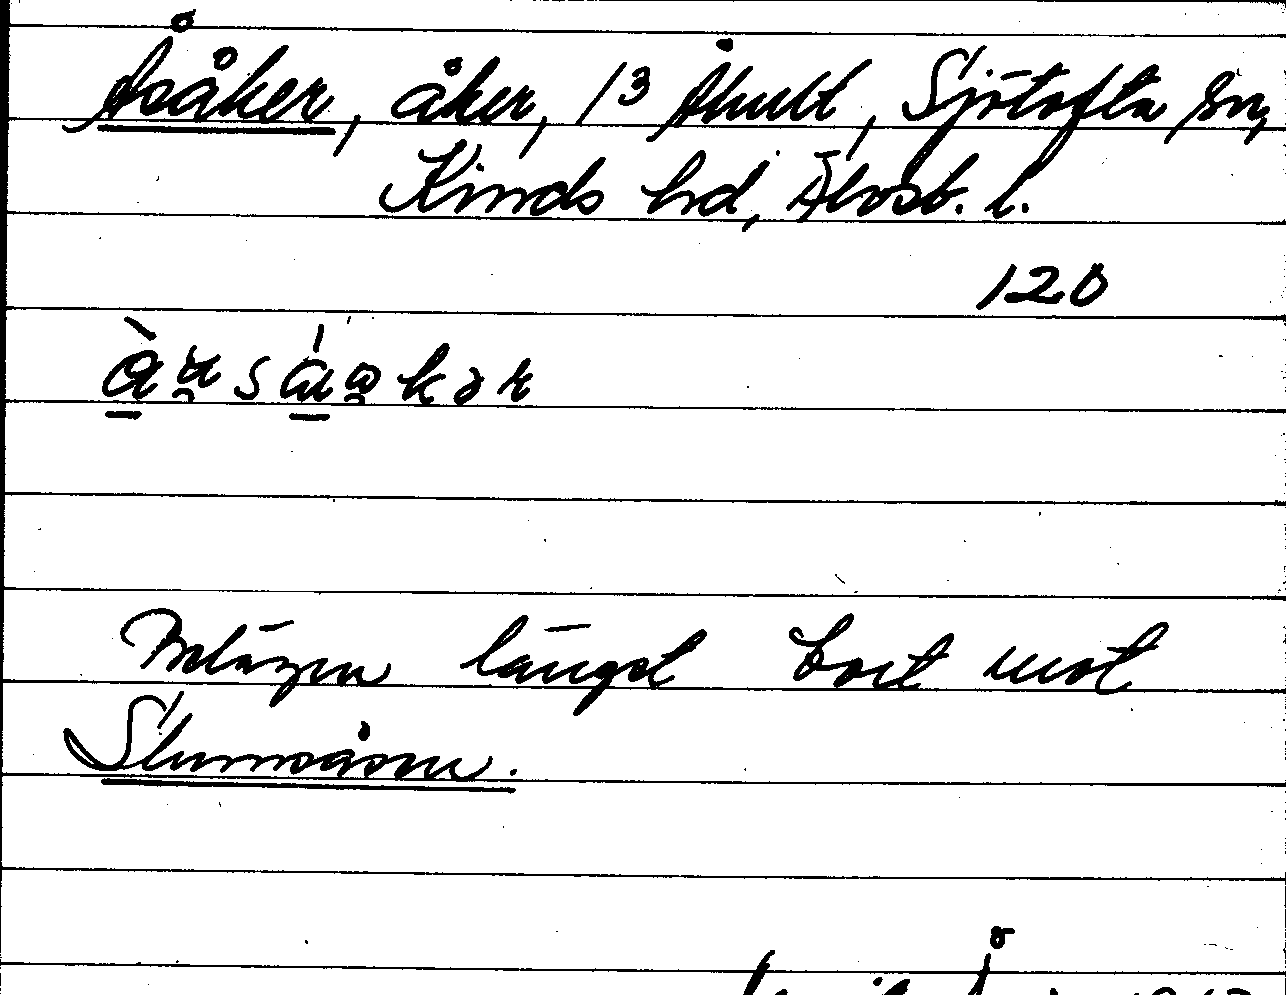 Åsåker, åker, 13 Åhult, Sjötofta sn,
Kinds hd, Älvsb. l.
120
Belägen längst bort mot
Slumsåsen.